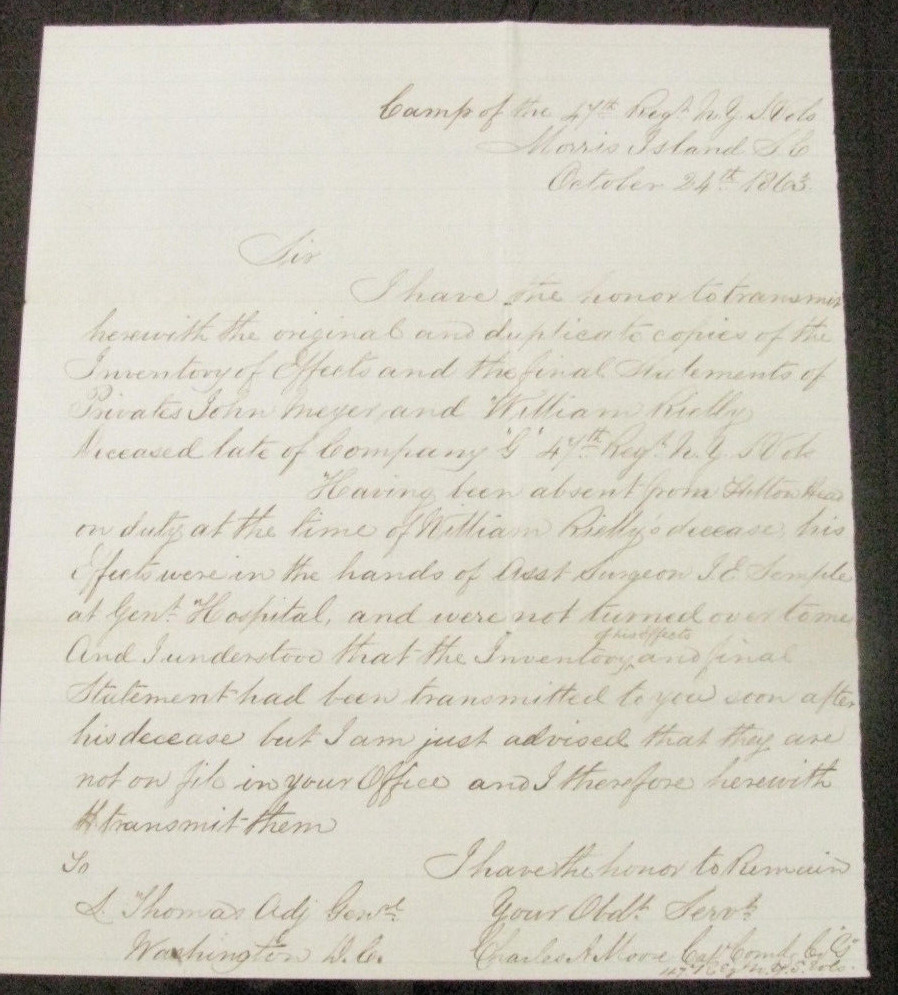 Camp of the 47th Regt. N.Y. S Vols
Morris Island S C
October 24th 1863.
Sir
I have the honor to transmit
herewith the original and duplicate copies of the
Inventory of Effects and the final Statements of
Privates John Meyer and William Rielly
Deceased late of Company "G" 47th Regt. N.Y. S Vols
Having been absent from Hilton Head
on duty at the time of William Rielly's decease, his
Effects were in the hands of Asst Surgeon I. E. Semple
at Genl. Hospital, and were not turned over to me
of his Effects
And I understood that the Inventory and final
Statement had been transmitted to you soon after
his decease but I am just advised that they are
not on file in your Office and I therefore herewith
transmit them
To
I have the honor to Remain
L. Thomas Adj Genrl.
Your Obdt. Servt.
Washington D.C.
Charles A. Moore Capt Comdg Co. "G"
47th Regt N.Y.S. Vols.